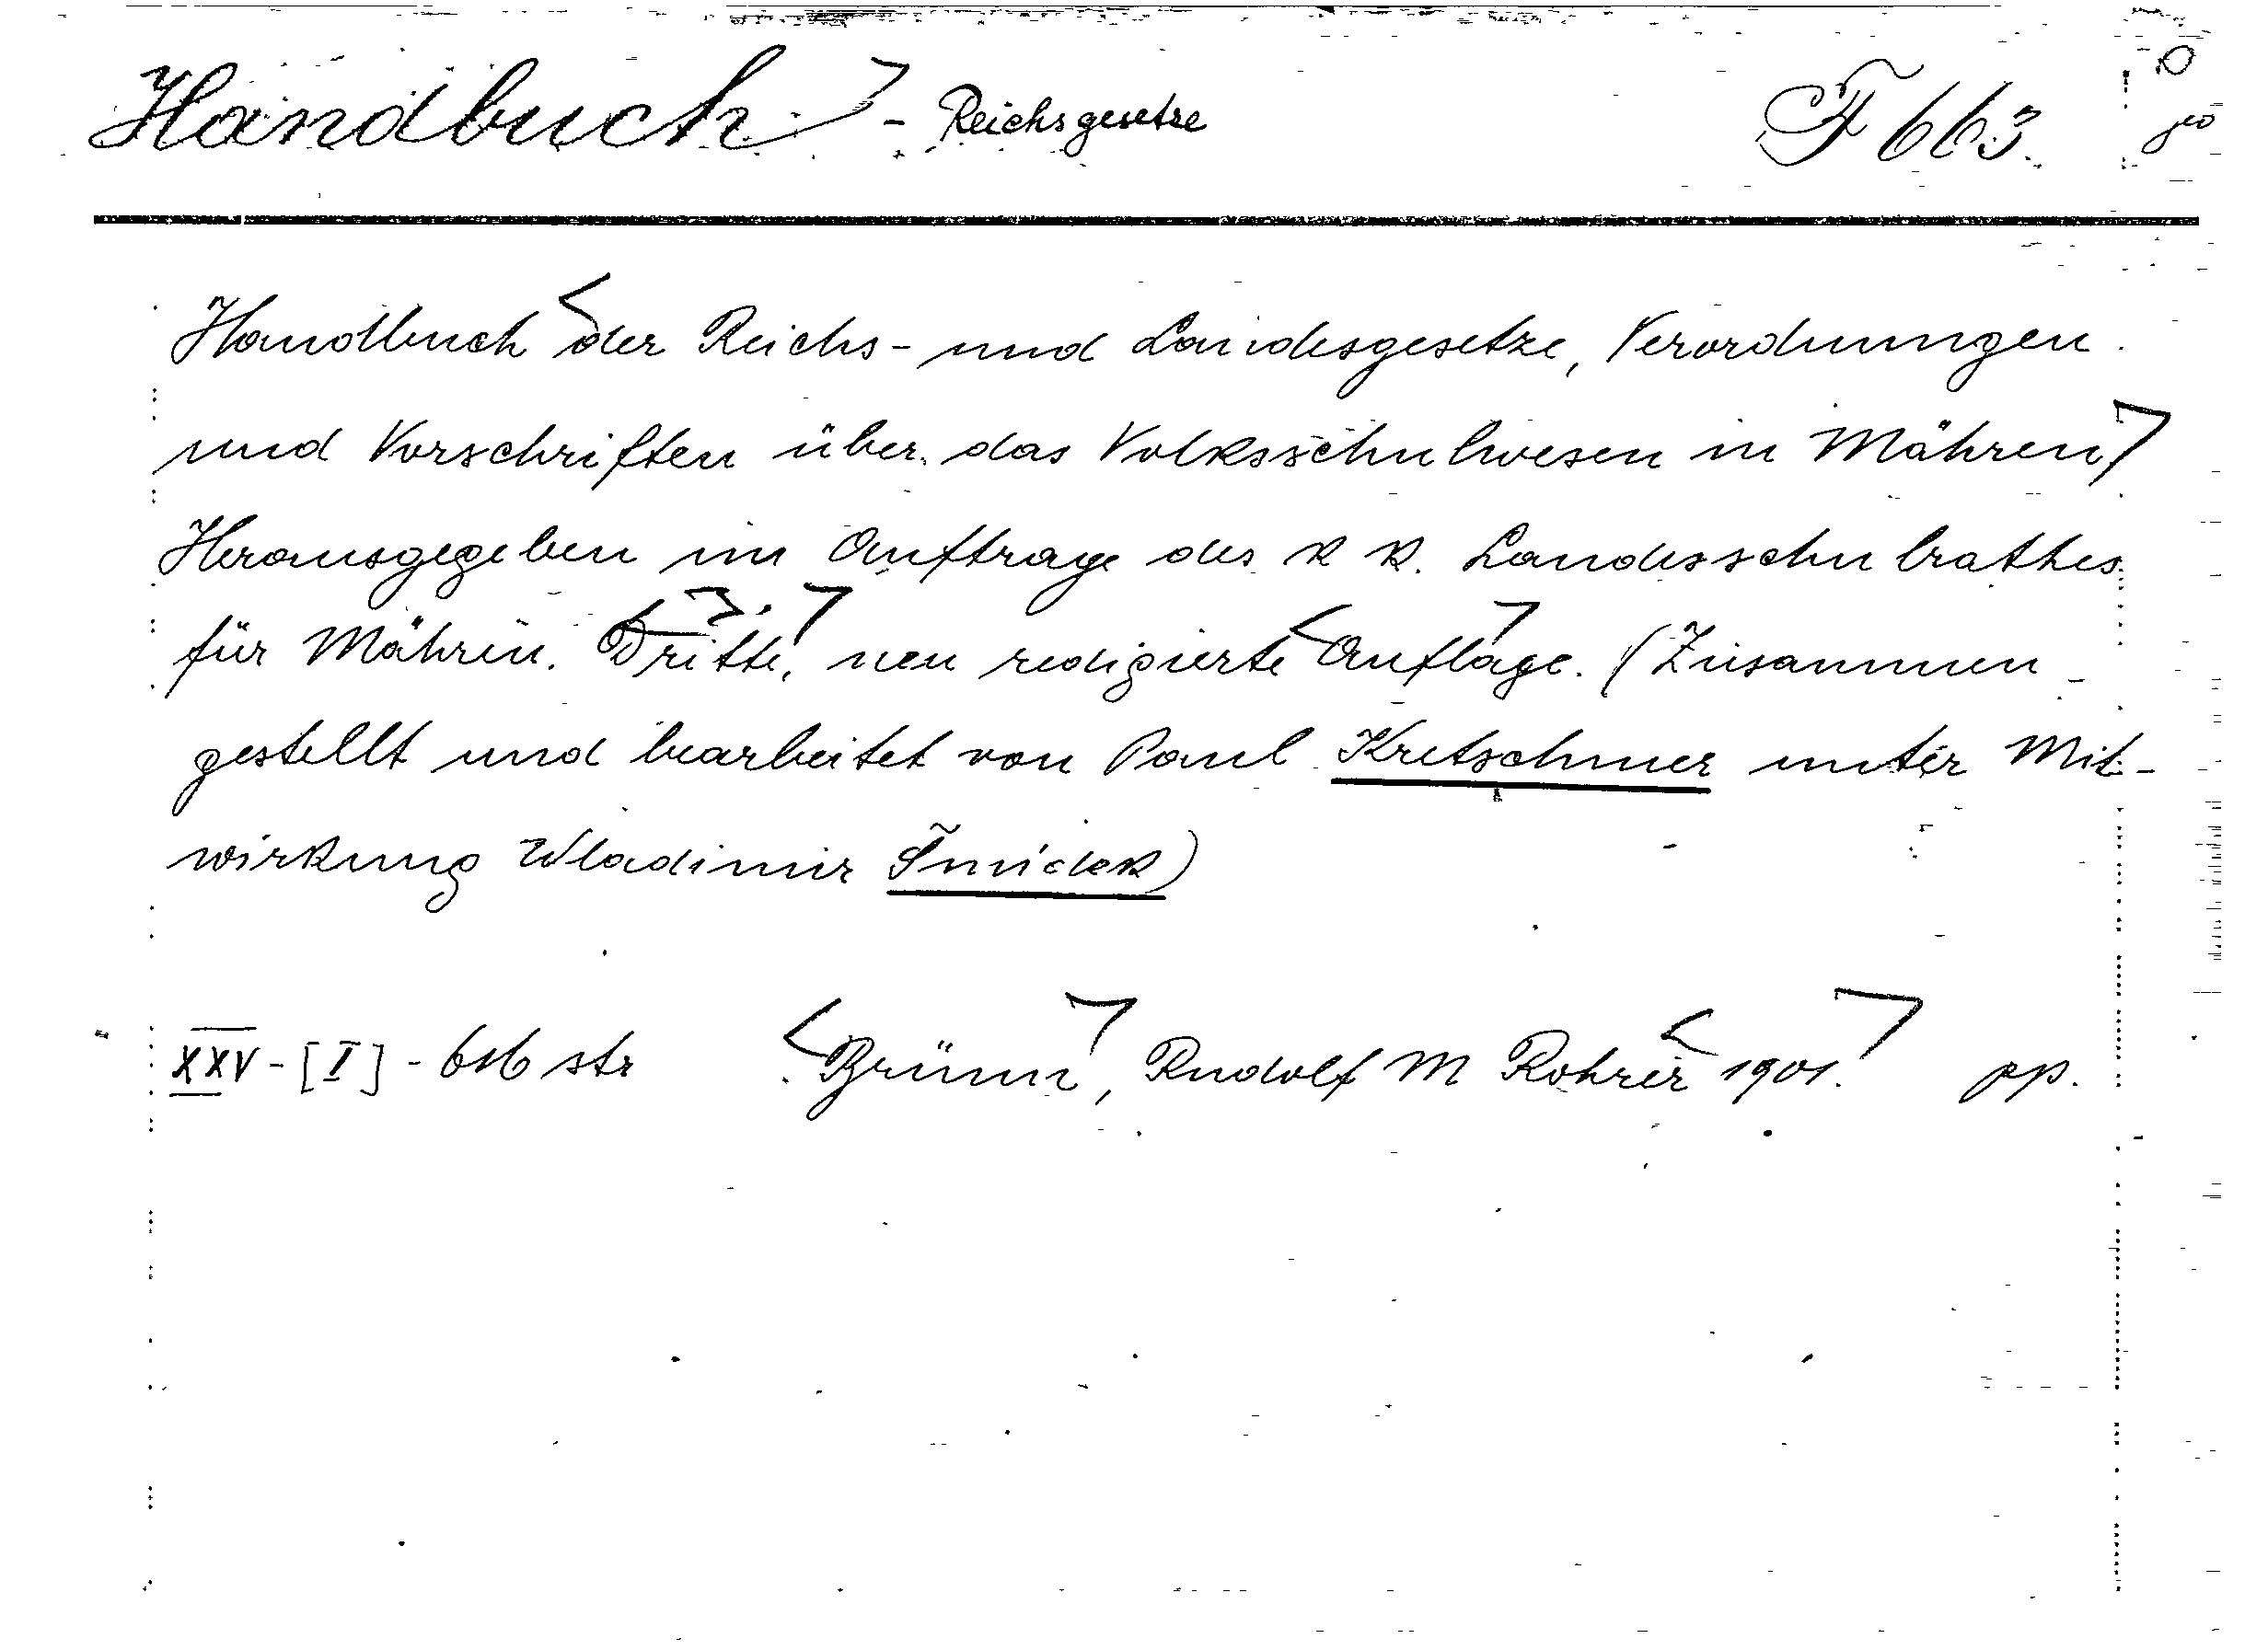 Handbuch - Reichsgesetze F 663
Handbuch der Reichs- und Landesgesetze, Verordnungen
und Vorschriften über das Volksschulwesen in Mähren
Herausgegeben im Auftrage des k k. Landesschulrathes
für Mähren. Dritte, neu redigierte Auflage. (Zusammen
gestellt und bearbeitet von Paul Kretschmer unter Mit-
wirkung Wladimir)
XXV - [I] - 616 str Brünn, Rudolf M Rohrer 1901. pp.